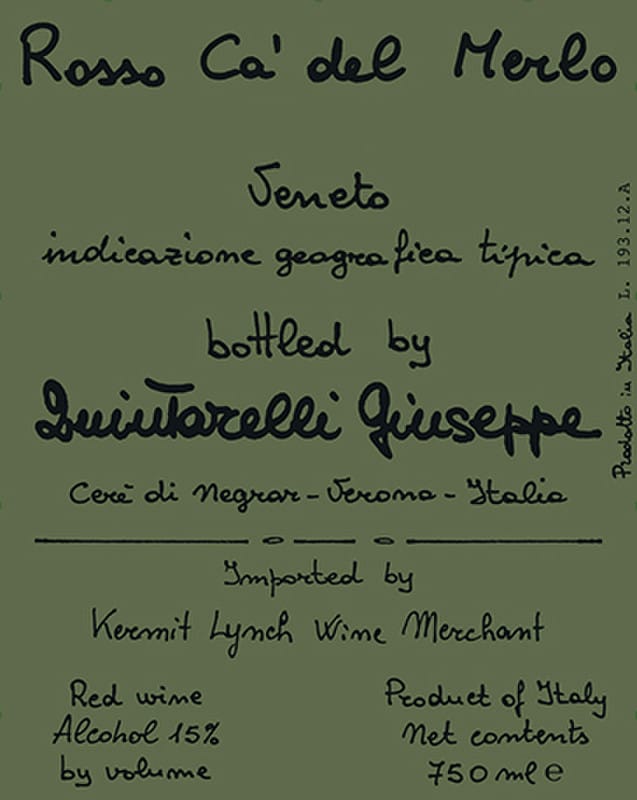 Rosso Ca' del Merlo
Veneto
indicazione geografica tipica
bottled by
Quintarelli Giuseppe
Cerè di Negrar - Verona - Italia
Imported by
Kermit Lynch Wine Merchant
Red wine
Alcohol 15%
by volume
Product of Italy
Net contents
750 ml e
Prodotto in Italia L. 193.12.A